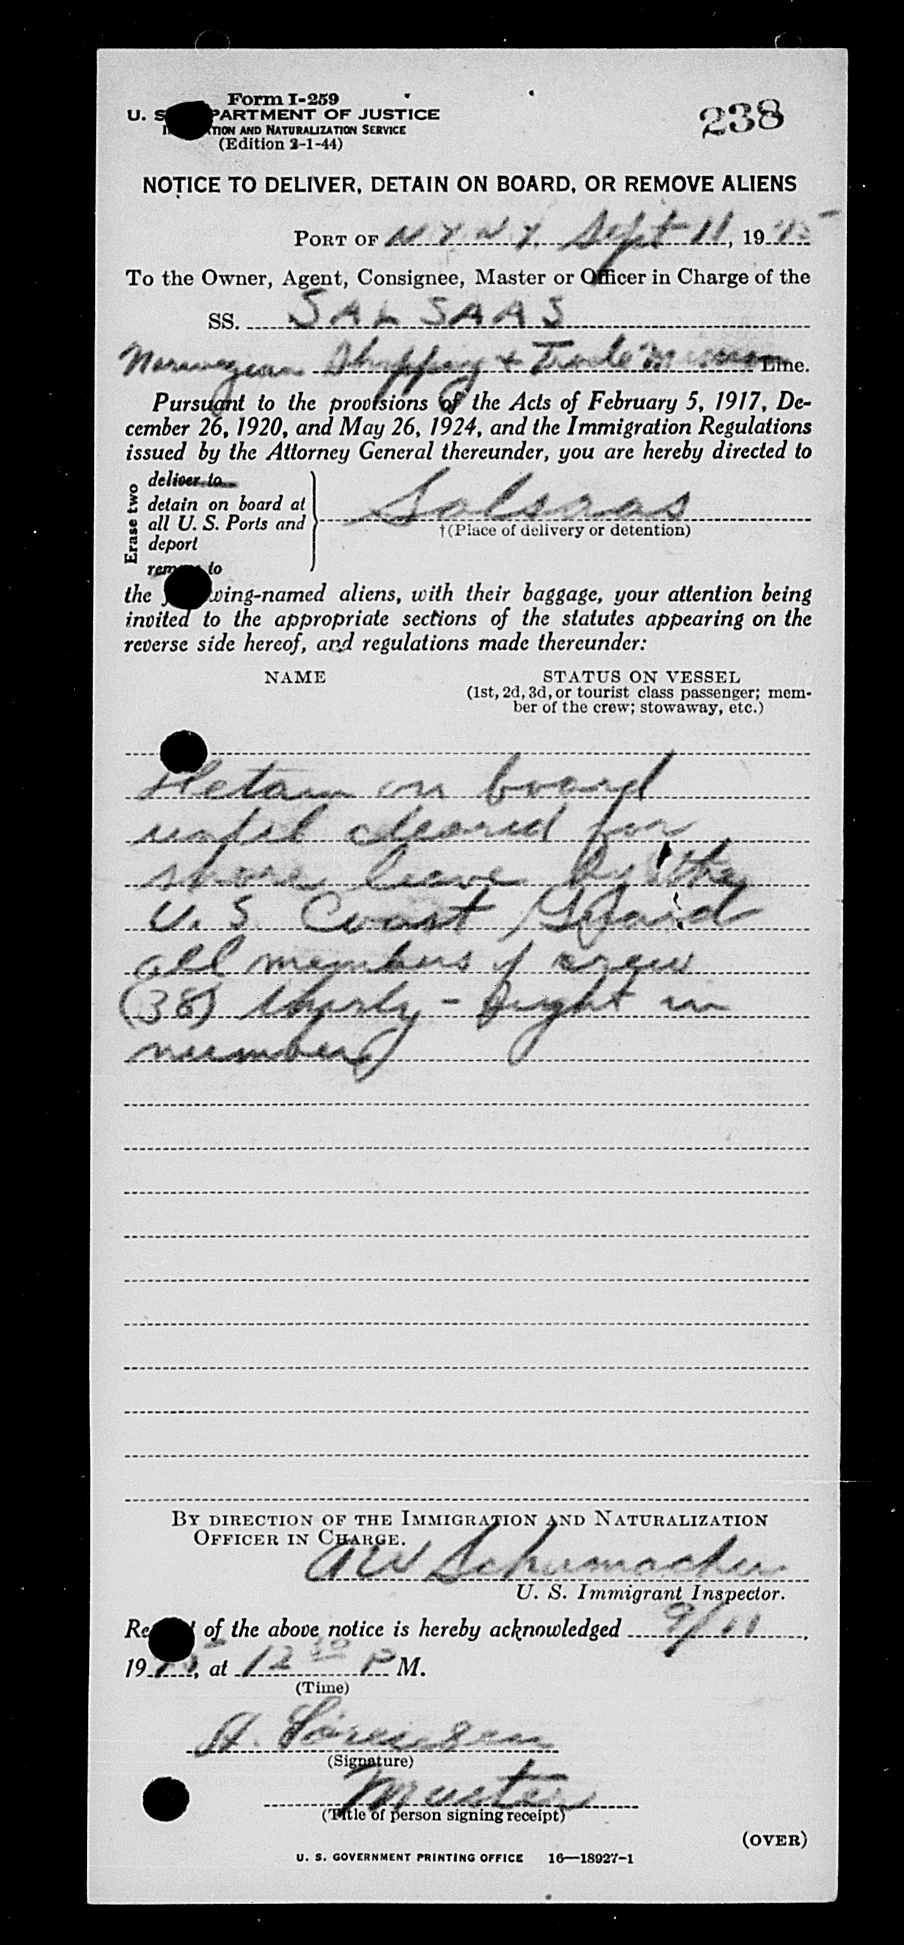 Form I-259
U. S. DEPARTMENT OF JUSTICE
IMMIGRATION AND NATURALIZATION SERVICE
(Edition 2-1-44)
238
NOTICE TO DELIVER, DETAIN ON BOARD, OR REMOVE ALIENS
PORT OF N.Y. N.Y. Sept 11, 1945
To the Owner, Agent, Consignee, Master or Officer in Charge of the
SS. SALSAAS
Norwegian Shipping & Trade Mission Line.
Pursuant to the provisions of the Acts of February 5, 1917, De-
cember 26, 1920, and May 26, 1924, and the Immigration Regulations
issued by the Attorney General thereunder, you are hereby directed to
Erase two
deliver to
detain on board at
all U. S. Ports and
deport
remove to
Salsaas
†(Place of delivery or detention)
the following-named aliens, with their baggage, your attention being
invited to the appropriate sections of the statutes appearing on the
reverse side hereof, and regulations made thereunder:
NAME STATUS ON VESSEL
(1st, 2d, 3d, or tourist class passenger; mem-
ber of the crew; stowaway, etc.)
Detain on board
until cleared for
shore leave by the
U.S. Coast Guard
all members of crew
(38) thirty-eight in
number
BY DIRECTION OF THE IMMIGRATION AND NATURALIZATION
OFFICER IN CHARGE.
AW Schumacher
U. S. Immigrant Inspector.
Receipt of the above notice is hereby acknowledged 9/11,
1945, at 12 30 P M.
(Time)
(Signature)
Master
(Title of person signing receipt)
(OVER)
U. S. GOVERNMENT PRINTING OFFICE 16—18927-1